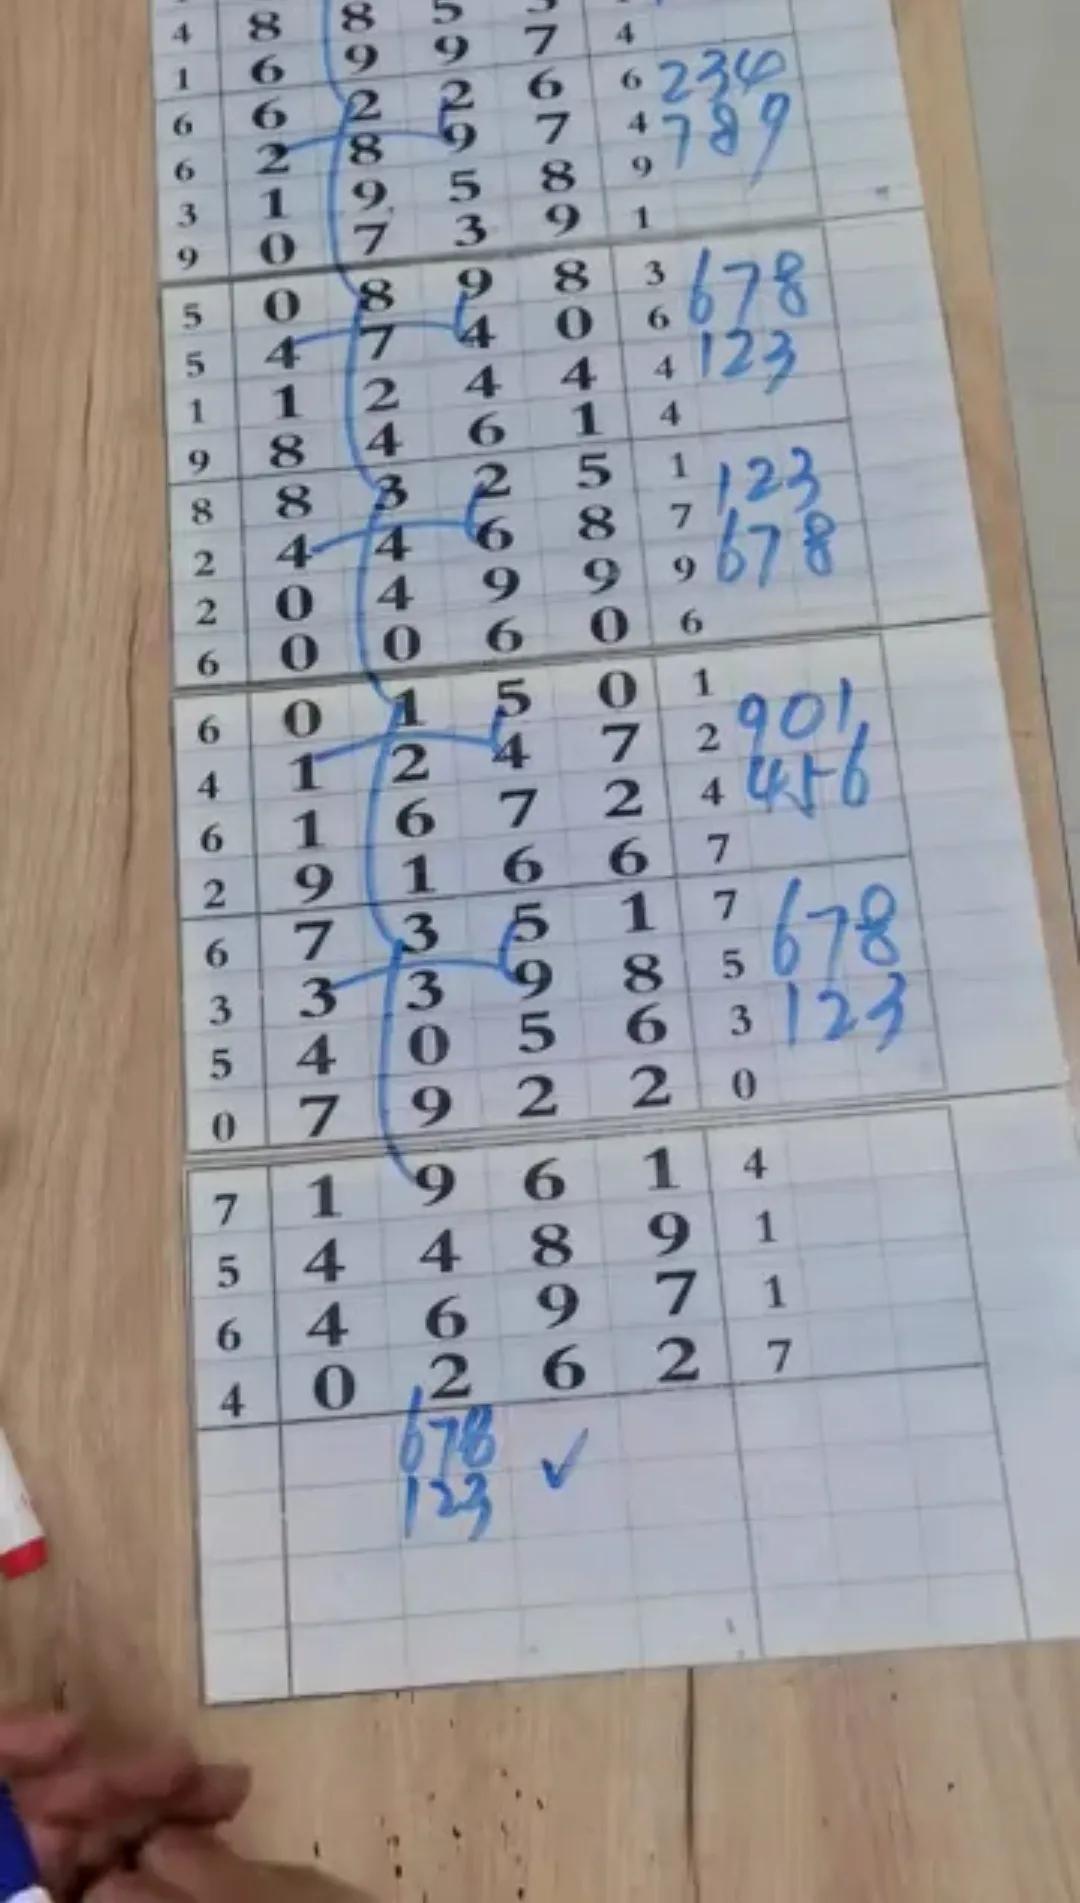 4 8 8 5 4
1 6 9 9 7 6 234
6 6 2 2 6 4 789
6 2 8 9 7 9
3 1 9 5 8 1
9 0 7 3 9
5 0 8 9 8 3 678
5 4 7 4 0 6 123
1 1 2 4 4 4
9 8 4 6 1 4
8 8 3 2 5 1 123
2 4 4 6 8 7 678
2 0 4 9 9 9
6 0 0 6 0 6
6 0 1 5 0 1 901
4 1 2 4 7 2 456
6 1 6 7 2 4
2 9 1 6 6 7
6 7 3 5 1 7 678
3 3 3 9 8 5 123
5 4 0 5 6 3
0 7 9 2 2 0
7 1 9 6 1 4
5 4 4 8 9 1
6 4 6 9 7 1
4 0 2 6 2 7
678
123 ✓